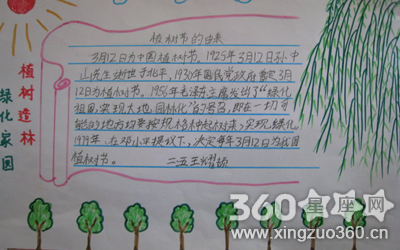 植树节的由来
3月12日为中国植树节。1925年3月12日孙中
山先生逝世于北平,1930年国民党政府暂定3月
12日为植树节。1956年毛泽东主席发出了“绿化
祖国,实现大地园林化”的号召,即在一切可
能的地方均要按规格种起树来,实现绿化。
1979年,在邓小平提议下,决定每年3月12日为我国
植树节。
二五王
植树造林
绿化家园
360星座网
www.xingzuo360.cn